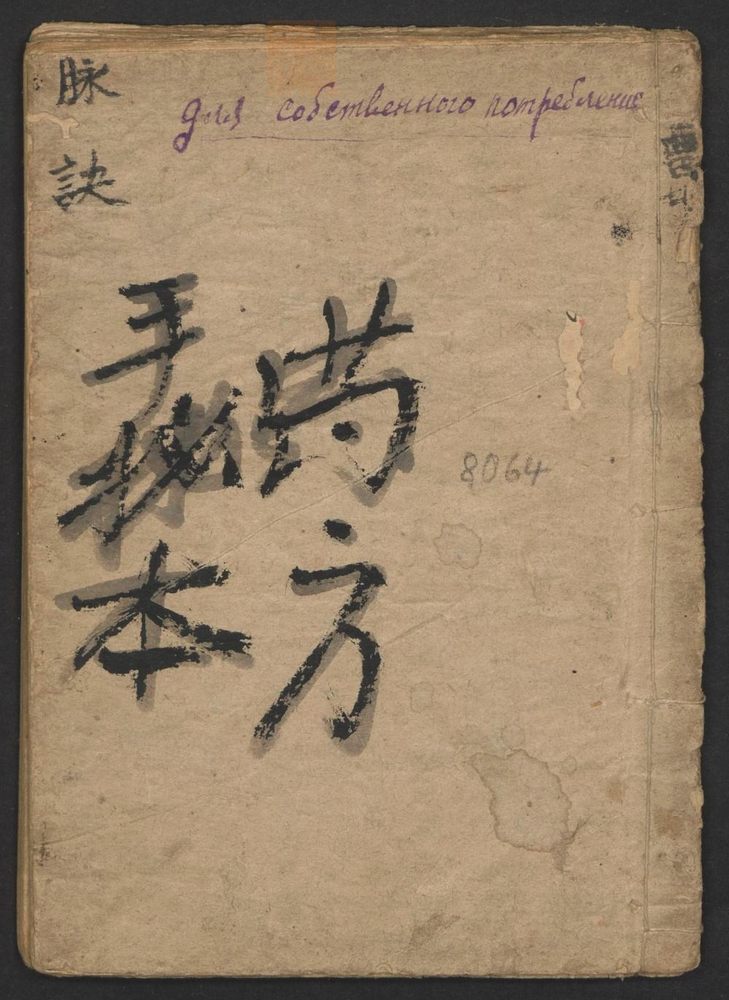 для собственного потребление
脉訣
药方
手本
8064